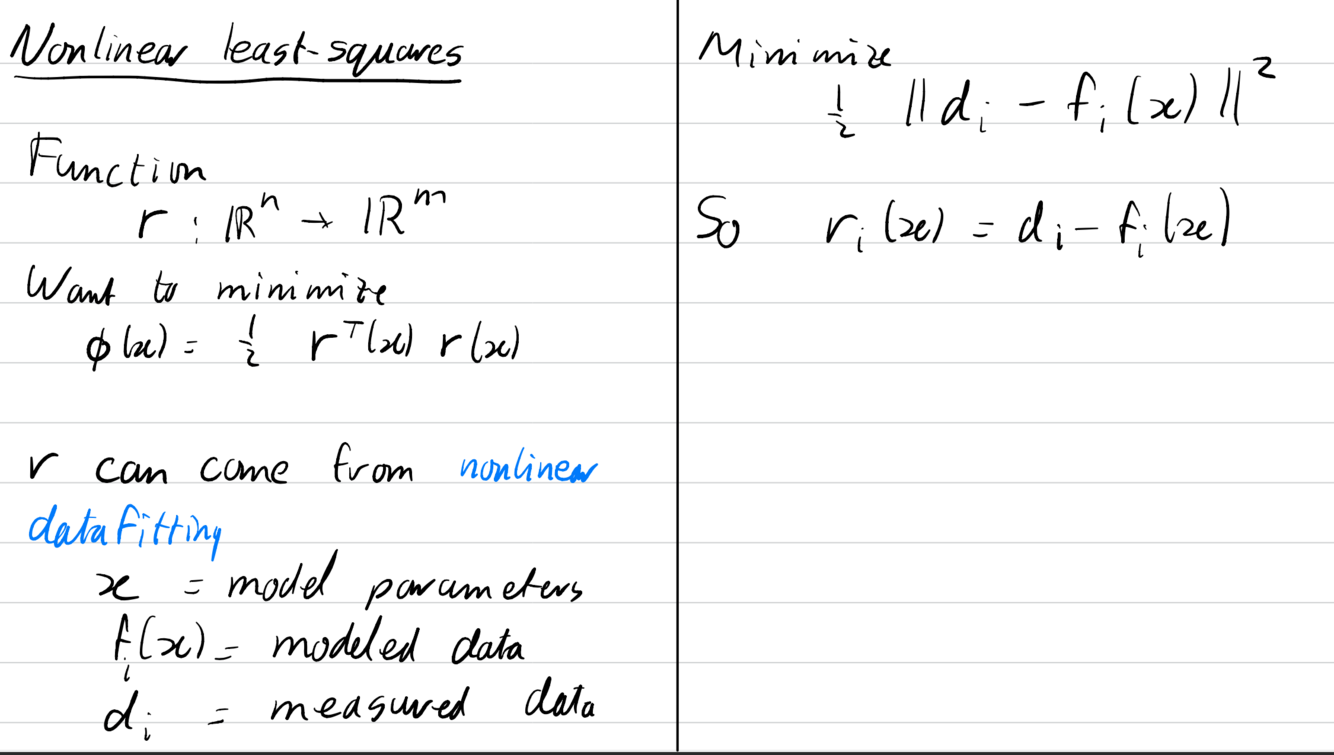 Nonlinear least-squares
Function
r : ℝⁿ → ℝᵐ
Want to minimize
ϕ(x) = ½ rᵀ(x) r(x)
r can come from nonlinear
datafitting
x = model parameters
fᵢ(x) = modeled data
dᵢ = measured data
Minimize
½ ||dᵢ - fᵢ(x)||²
So rᵢ(x) = dᵢ - fᵢ(x)